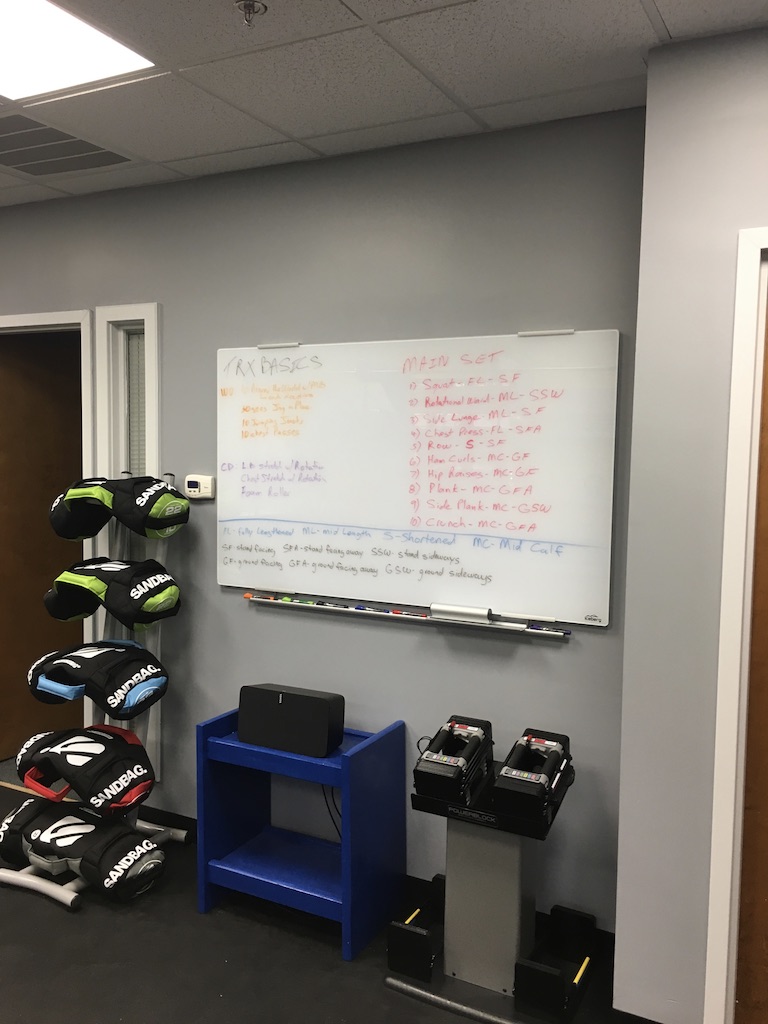 TRX BASICS
WU:
Jog in Place
10 Jumping Jacks
CD: Stretch w/ Rotation
Chest Stretch w/ Rotation
Foam Roller
MAIN SET
1) Squat - FL - SF
2) Rotational - ML - SSW
3) Side Lunge ML - SF
4) Chest Press - FL - SFA
5) Row - S - SF
6) Ham Curls - MC - GF
7) Hip Raises - MC - GF
8) Plank - MC - GFA
9) Side Plank - MC - GSW
10) Crunch - MC - GFA
FL - fully Lengthened ML - mid Length S - Shortened MC - Mid Calf
SF - stand facing SFA - stand facing away SSW - stand sideways
GF - ground facing GFA - ground facing away GSW - ground sideways
SANDBAG.
SANDBAG.
SANDBAG.
SANDBAG.
SANDBAG.
POWERBLOCK